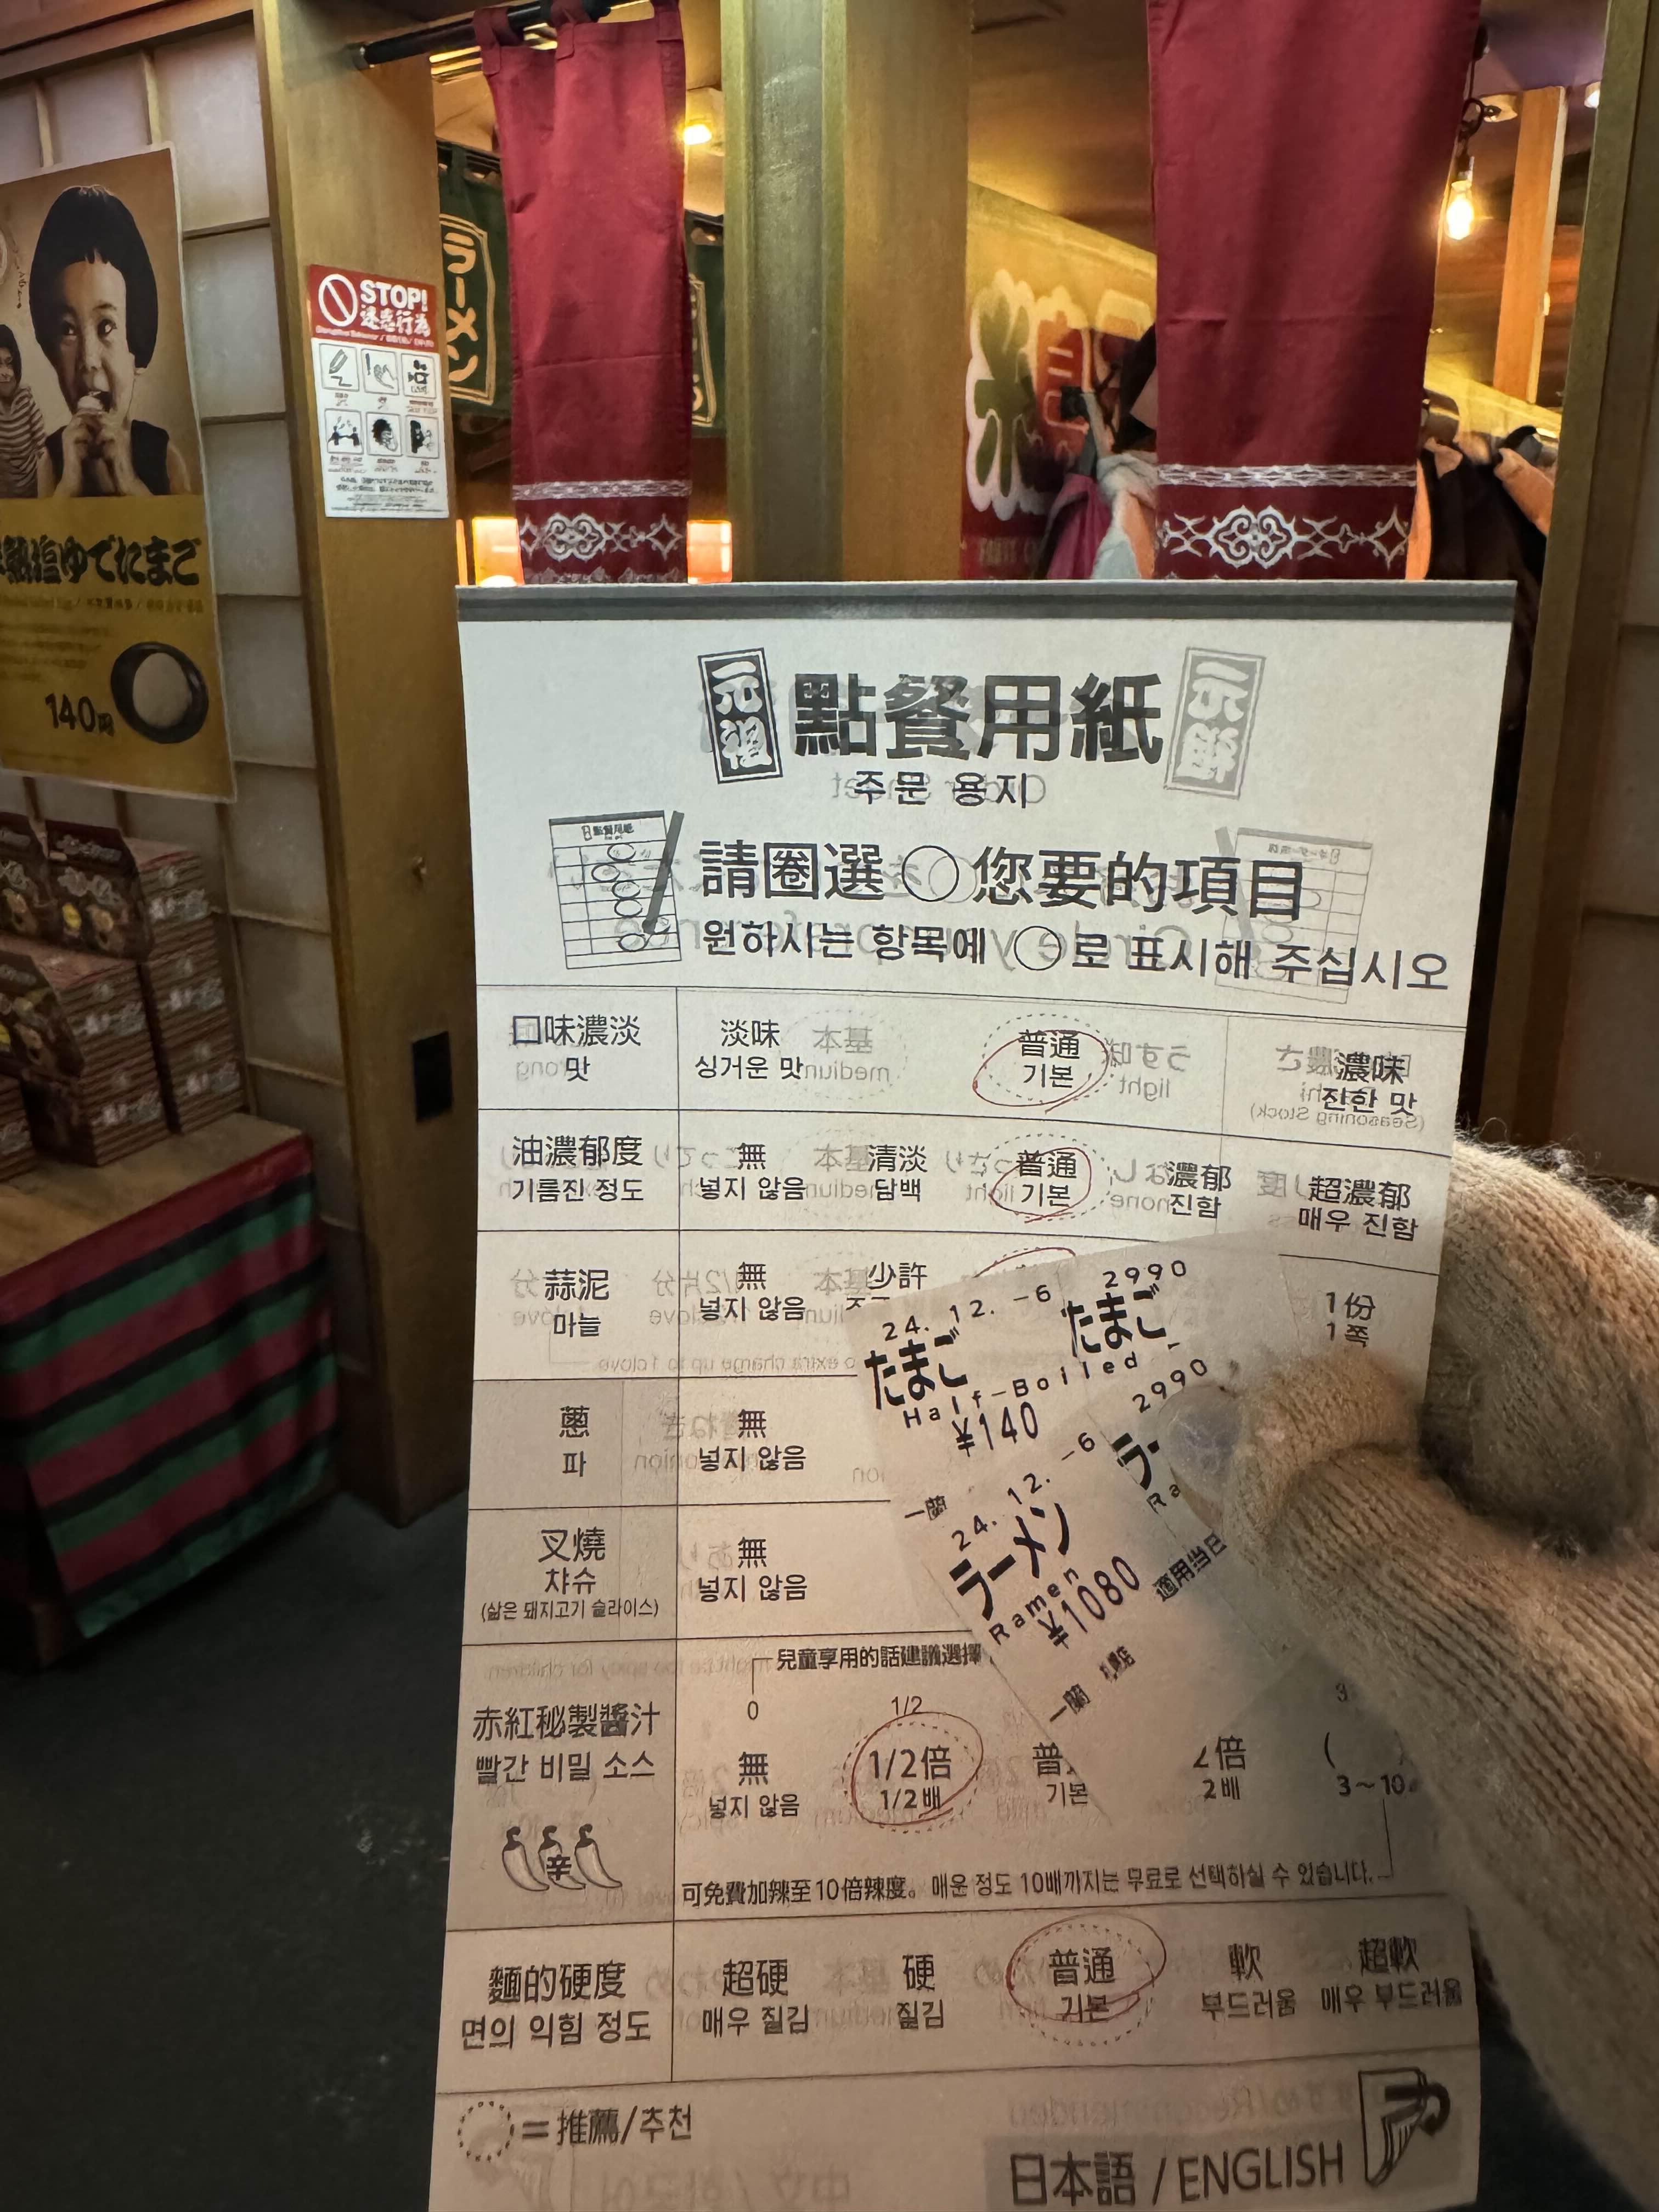 ラーメン
STOP!
迷惑行為
ゆでたまご
140円
元祖
點餐用紙
주문 용지
請圈選○您要的項目
원하시는 항목에 ○로 표시해 주십시오
口味濃淡 淡味 普通 濃味
맛 싱거운 맛 기본 진한 맛
油濃郁度 無 清淡 普通 濃郁 超濃郁
기름진 정도 넣지 않음 담백 기본 진함 매우 진함
蒜泥 無 少許 1份
마늘 넣지 않음 1쪽
蔥 無
파 넣지 않음
叉燒 無
차슈 넣지 않음
(삶은 돼지고기 슬라이스)
兒童享用的話建議選擇
0 1/2 3
赤紅秘製醬汁 無 1/2倍 2倍 (
빨간 비밀 소스 넣지 않음 1/2배 기본 2배 3~10
辛
可免費加辣至10倍辣度。매운 정도 10배까지는 무료로 선택하실 수 있습니다.
麵的硬度 超硬 硬 普通 軟 超軟
면의 익힘 정도 매우 질김 질김 기본 부드러움 매우 부드러움
= 推薦/추천
日本語 / ENGLISH
24. 12. -6 2990
たまご たまご
Half-Boiled
¥140
一蘭
24. 12. -6 2990
ラーメン
Ramen
¥1080
適用当日
一蘭